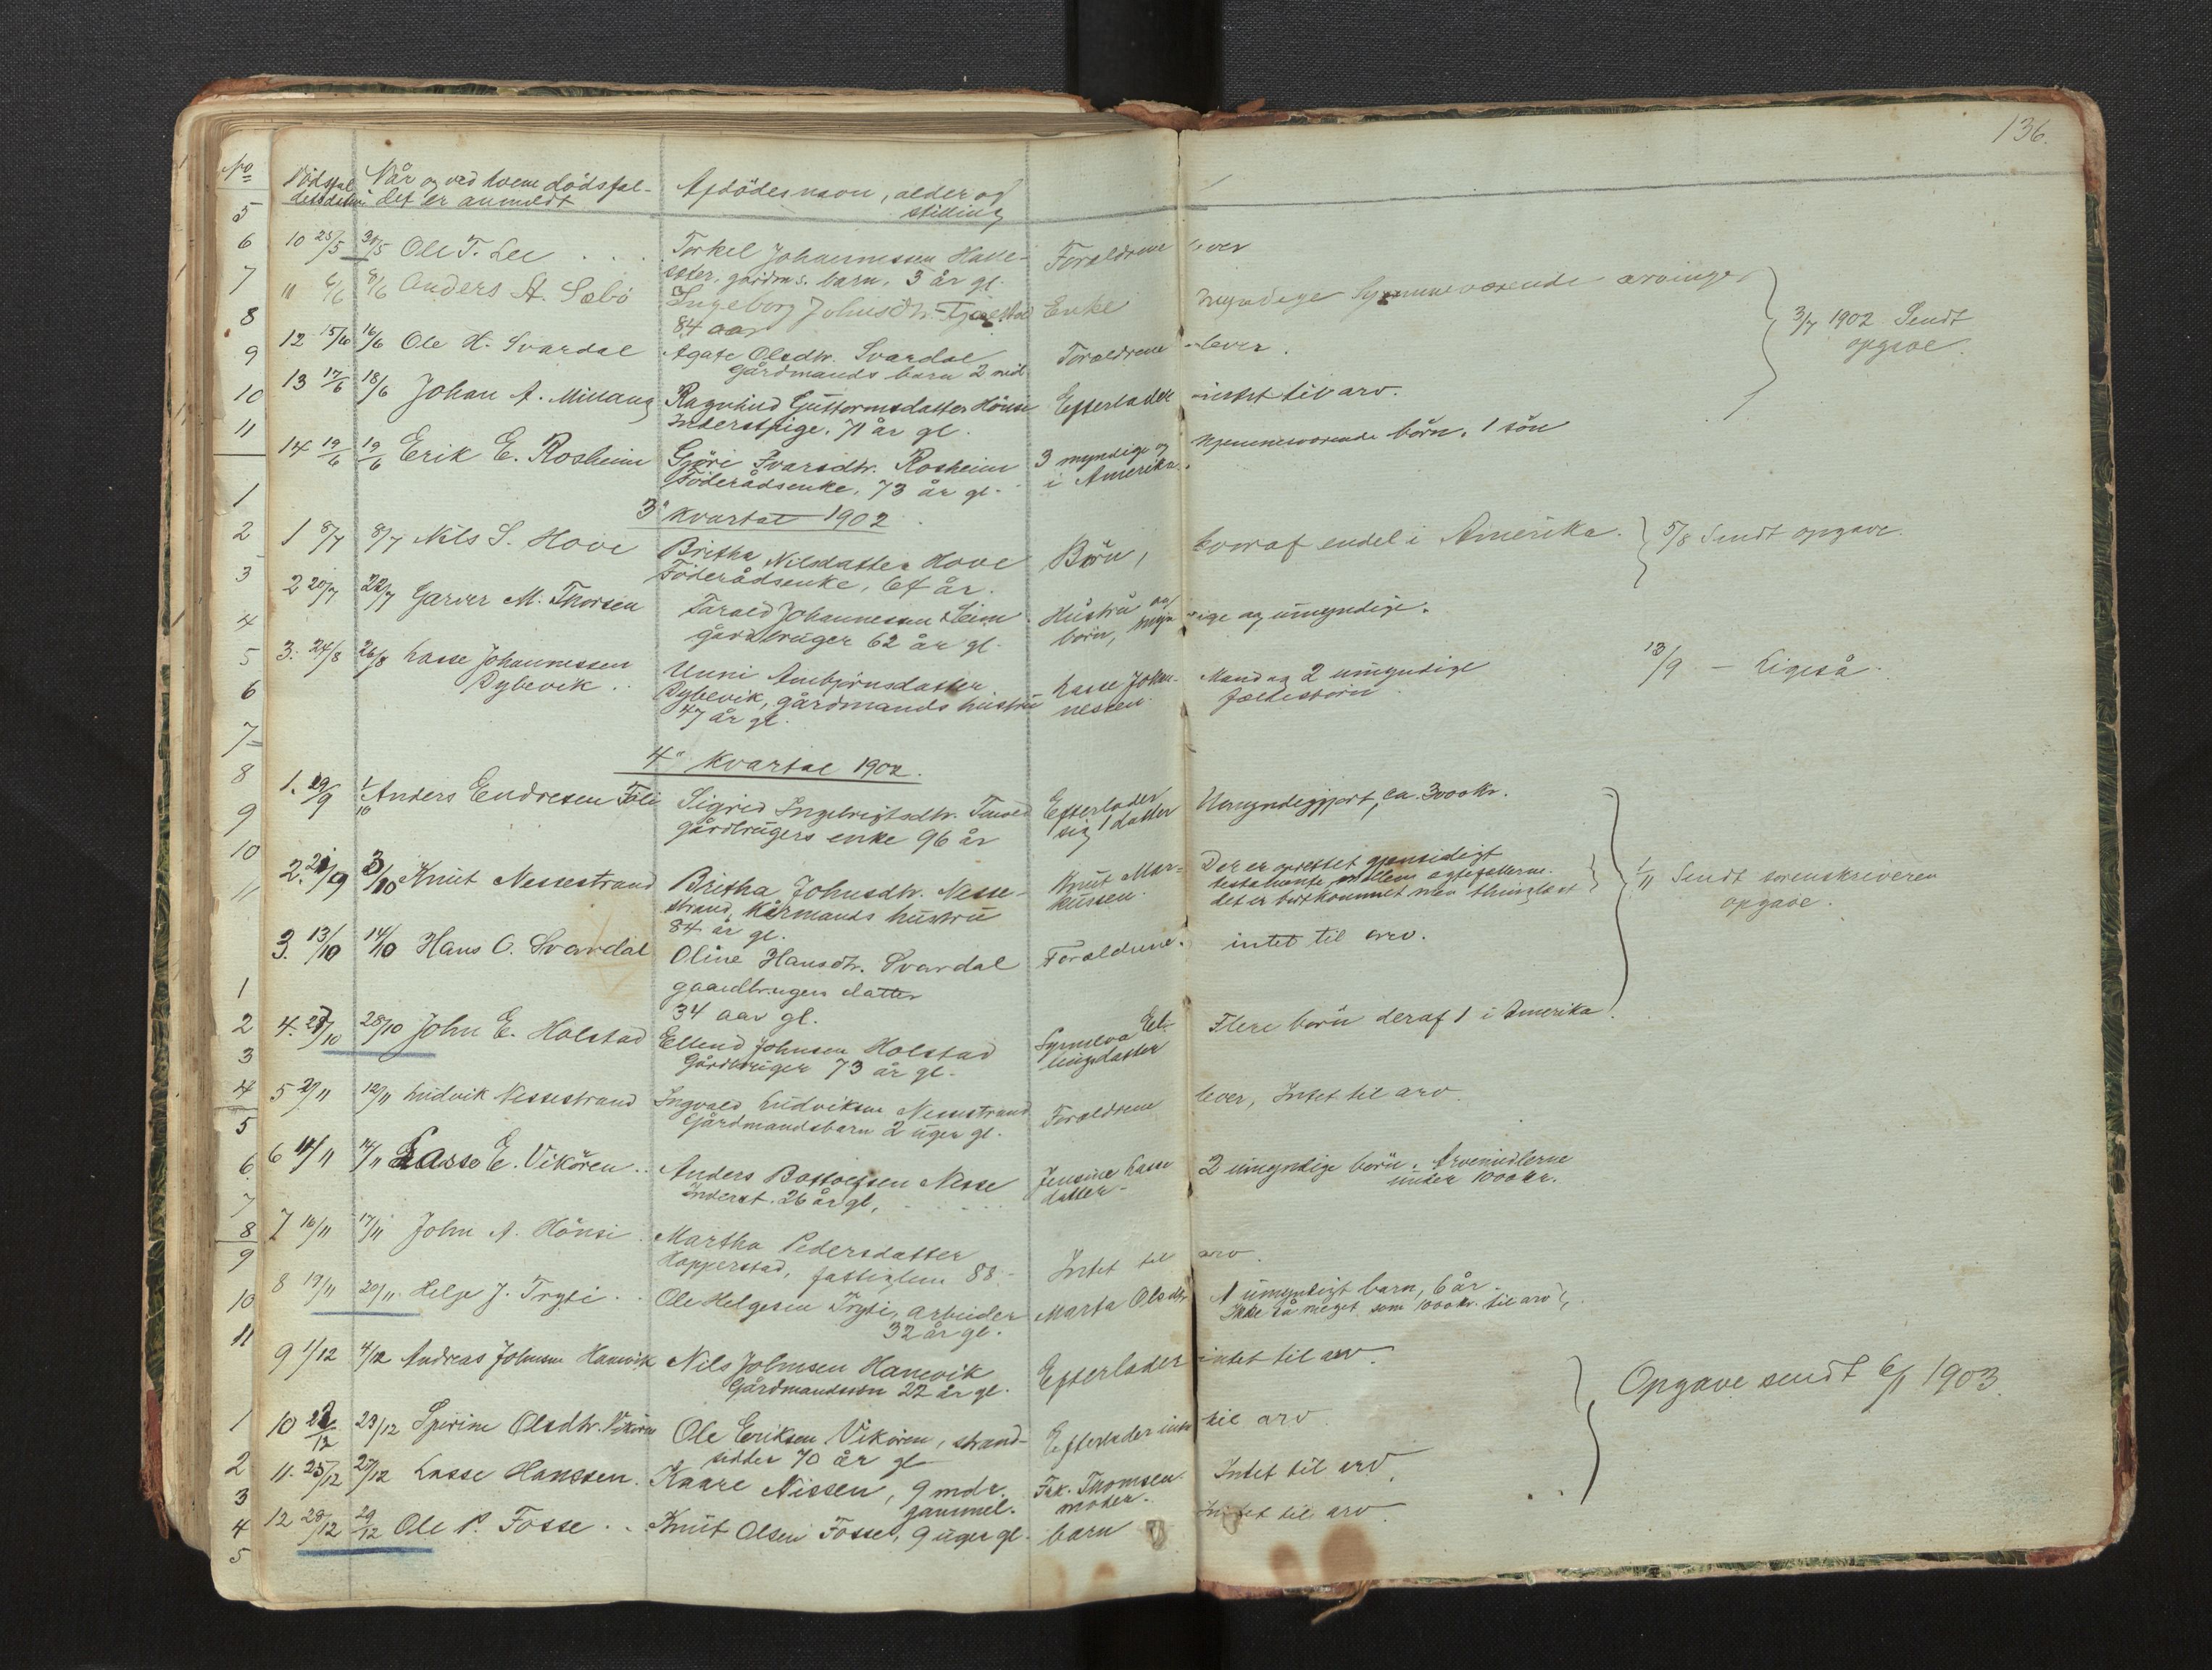 136.
No
Dödsfal- Når og ved hvem dödsfal- Afdödes navn, alder og
det er anmeldt stilling
10 25/5 30/5 Ole T. Lee Torkel Johannessen Forældrene lever
gårdm.s. barn, 3 år gl.
11 6/6 8/6 Anders A. Sæbö Ingeborg Johnsdtr. Enke myndige hjemmeværende arvinger
84 aar
3/7 1902 Sendt
opgave.
12 15/6 16/6 Ole H. Svardal Agate Olsdtr. Svardal Forældrene lever.
gårdmands barn 2 md.
13 17/6 18/6 Johan A. Millang Ragnhild Guttormsdatter Hönsi Efterlader intet til arv.
Inderstpige. 71 år gl.
14 19/6 19/6 Erik E. Rosheim Gjöri Ivarsdtr. Rosheim 3 myndige og hjemmeværende börn. 1 sön
Föderådsenke, 73 år gl. i Amerika.
3' kvartal 1902
1 8/7 8/7 Nils S. Hove Britha Nilsdatter Hove Börn, hvoraf endel i Amerika. 5/8 Sendt opgave.
Föderådsenke, 64 år.
2 20/7 22/7 Garver M. Thorsen Tarald Johannessen Seim Hustru og
gårdbruger 62 år gl. börn, myndige og umyndige.
3. 24/8 26/8 Lasse Johannessen Unni Ambjörnsdatter Lasse Johan- Mand og 2 umyndige 13/9 - Ligeså.
Dybevik Dybevik, gårdmands hustru nessen. fælles börn
47 år gl.
4" kvartal 1902.
1. 29/9 1/10 Anders Endresen Sigrid Ingebrigtsdtr. Efterlader Umyndiggjort, ca. 3000 kr.
gårdbrugers enke 96 år sig 1 datter
2. 3/10 Knut Nessestrand Britha Johnsdtr. Nesse- Knut Mar- Der er oprettet gjensidigt
strand, kårmands hustru kussen. testamente mellem ægtefællerne.
84 år gl. det er bortkommet men thinglæst
1/11 Sendt sorenskriveren
opgave.
3. 13/10 14/10 Hans O. Svardal Oline Hansdtr. Svardal Forældrene. intet til arv.
gaardbrugers datter
34 aar gl.
4. 27/10 28/10 John E. Holstad Ellend Johnsen Holstad Synneva El- Flere börn deraf 1 i Amerika.
Gårdbruger 73 år gl. lingsdatter
5 12/11 Ludvik Nessestrand Ingvald Ludviksen Nessestrand Forældrene lever, Intet til arv.
Gårdmandsbarn 2 uger gl.
6 11/11 14/11 Lasse E. Vikören Anders Bottolfsen Nesse Jensine Lasse 2 umyndige börn. Arvemidlerne
Inderst. 26 år gl, datter under 1000 kr.
7 16/11 17/11 John A. Hönsi Martha Pedersdatter
Hopperstad, fattiglem 88 Intet til arv.
8 19/11 20/11 Helge J. Tryti Ole Helgesen Tryti, arbeider Marta Olsdtr 1 umyndigt barn, 6 år.
32 år gl. Ikke så meget som 1000 kr. til arv
9 1/12 4/12 Andreas Johnsen Hamvik Nils Johnsen Hamvik Efterlader intet til arv.
Gårdmandssön 22 år gl.
Opgave sendt 6/1 1903.
10 22/12 23/12 Olsdtr. Vikören Ole Eriksen Vikören, strand- Efterlader intet til arv
sidder 70 år gl
11. 25/12 27/12 Lasse Hanssen. Kaare Nissen, 9 mdr. Frk. Thomsen Intet til arv.
gammel. moder.
12 28/12 29/12 Ole P. Fosse Knut Olsen Fosse, 9 uger gl. barn Intet til arv.